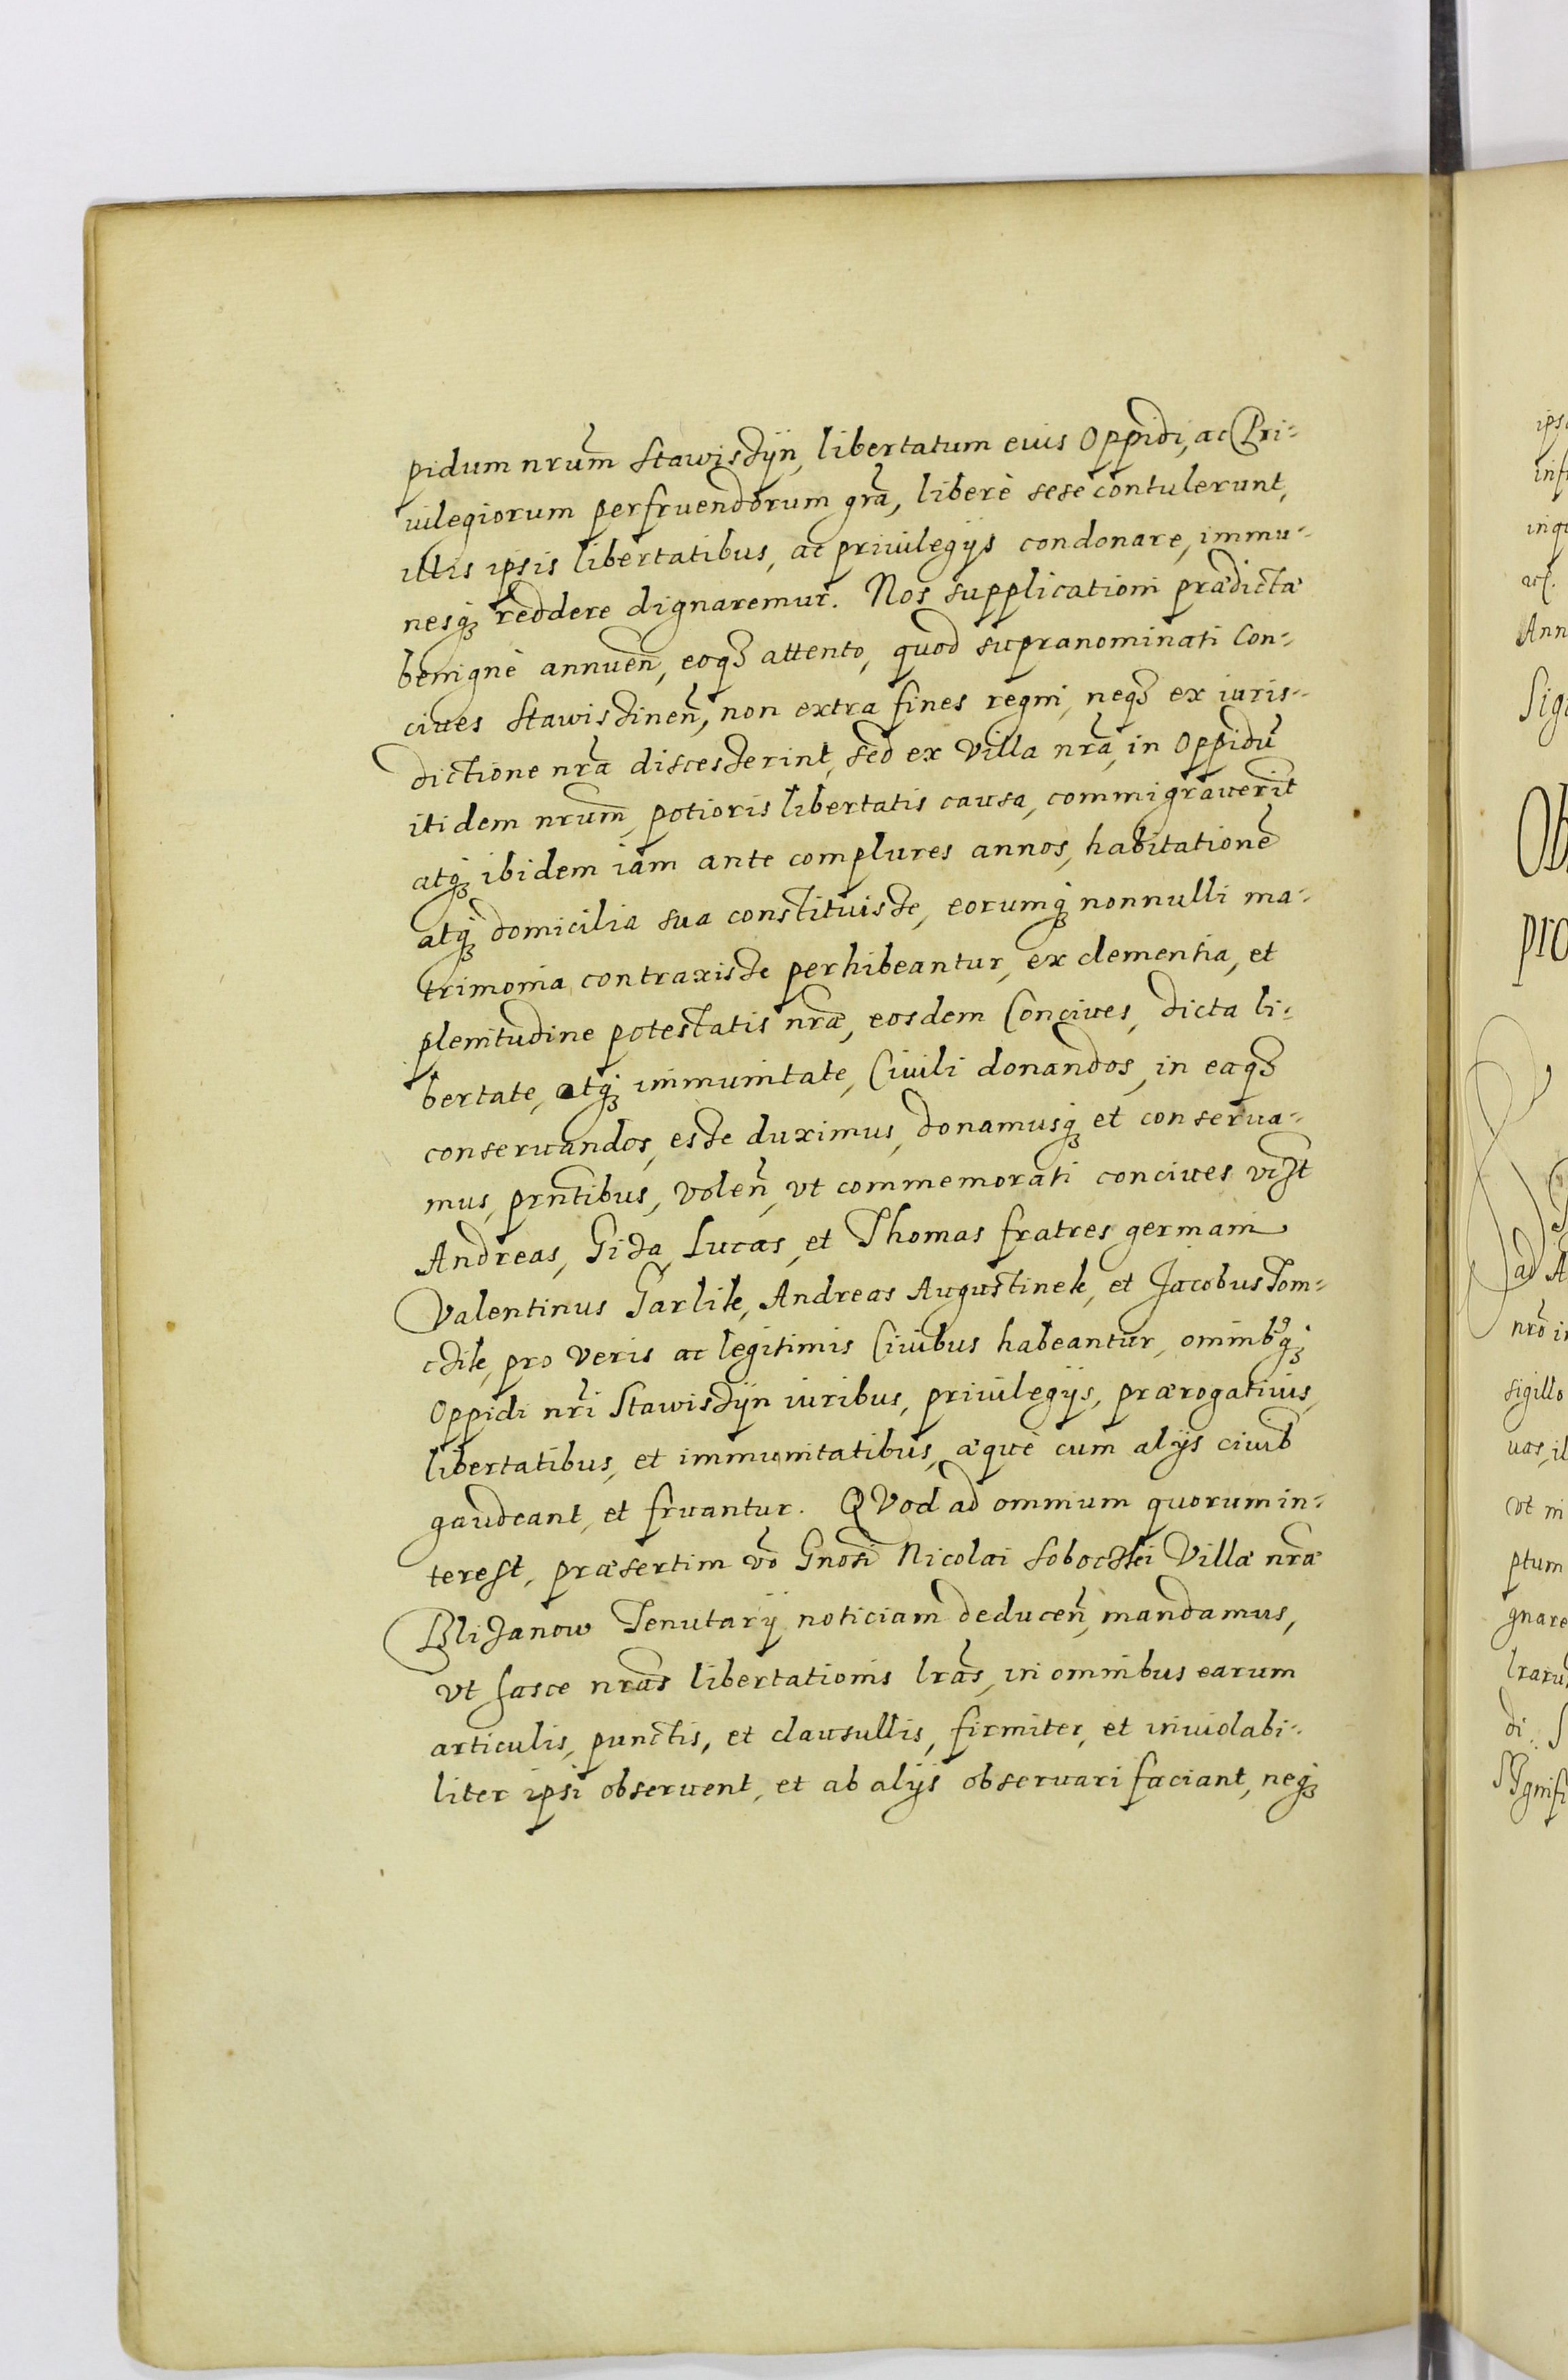 pidum nrũm Stawiszÿn, libertatum euis Oppidi, ac Pri-
uilegiorum perfruendorum grã, liberè sese contulerunt,
illis ipsis libertatibus, ac priuilegijs condonare, immu-
nesq₃ reddere dignaremur. Nos supplicationi prædictæ
benignè annueñ, eoq₃ attento, quod supranominati Con-
ciues Stawiszineñ, non extra fines regni, neq₃ ex iuris-
dictione nrã discesserint, sed ex Villa nrã, in Oppidũ
itidem nrũm, potioris libertatis causa, commigrauerĩt
atq₃ ibidem iam ante complures annos, habitationẽ
atq₃ domicilia sua constituisse, eorumq₃ nonnulli ma-
trimonia contraxisse perhibeantur, ex clementia, et
plenitudine potestatis nræ̃, eosdem Conciues, dicta li-
bertate, atq₃ immunitate, Ciuili donandos, in eaq₃
conseruandos, esse duximus, donamusq₃ et conserua-
mus, prñtibus, voleñ, vt commemorati conciues vizt
Andreas, Giza, Lucas, et Thomas fratres germani
Valentinus Garlik, Andreas Augustinek, et Jacobus Tom-
czik, pro veris ac legitimis Ciuibus habeantur, omnibꝰq₃
Oppidi nrĩ Stawiszÿn iuribus, priuilegijs, prærogatiuis,
libertatibus, et immunitatibus, æquè cum alijs ciuib
gaudeant, et fruantur. QVod ad omnium quorum in-
terest, præsertim võ Gnosi Nicolai Soboczki Villæ nræ̃
Blizanow Tenutarij noticiam deduceñ, mandamus,
vt hasce nrãs libertationis lrãs, in omnibus earum
articulis, punctis, et clausullis, firmiter, et inuiolabi-
liter ipsi obseruent, et ab alijs obseruari faciant, neq₃